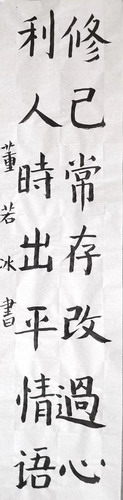 修己常存改過心
利人時出平情语
董若冰書